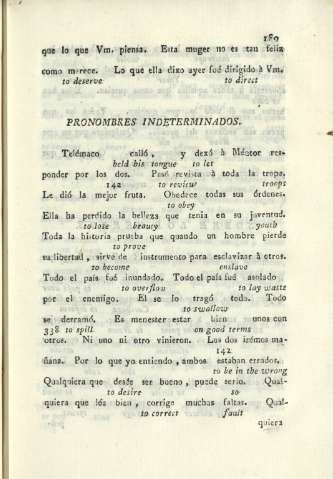 189
que lo que Vm. piensa. Esta muger no es tan feliz
como merece. Lo que ella dixo ayer fué dirigido à Vm.
to deserve to direct
PRONOMBRES INDETERMINADOS.
Telémaco calló, y dexó à Mentor res-
held his tongue to let
ponder por los dos. Pasó revista à toda la tropa.
142 to review troops
Le dió la mejor fruta. Obedece todas sus órdenes.
to obey
Ella ha perdido la belleza que tenia en su juventud.
to lose beauty youth
Toda la historia prueba que quando un hombre pierde
to prove
su libertad, sirve de instrumento para esclavizar à otros.
to become enslave
Todo el país fué inundado. Todo el país fué asolado
to overflow to lay waste
por el enemigo. El se lo tragó todo. Todo
to swallow
se derramó. Es menester estar bien unos con
338 to spill on good terms
otros. Ni uno ni otro vinieron. Los dos irémos ma-
142
ñana. Por lo que yo entiendo, ambos estaban errados.
to be in the wrong
Qualquiera que desée ser bueno, puede serlo. Qual-
to desire so
quiera que lée bien, corrige muchas faltas. Qual-
to correct fault
quiera